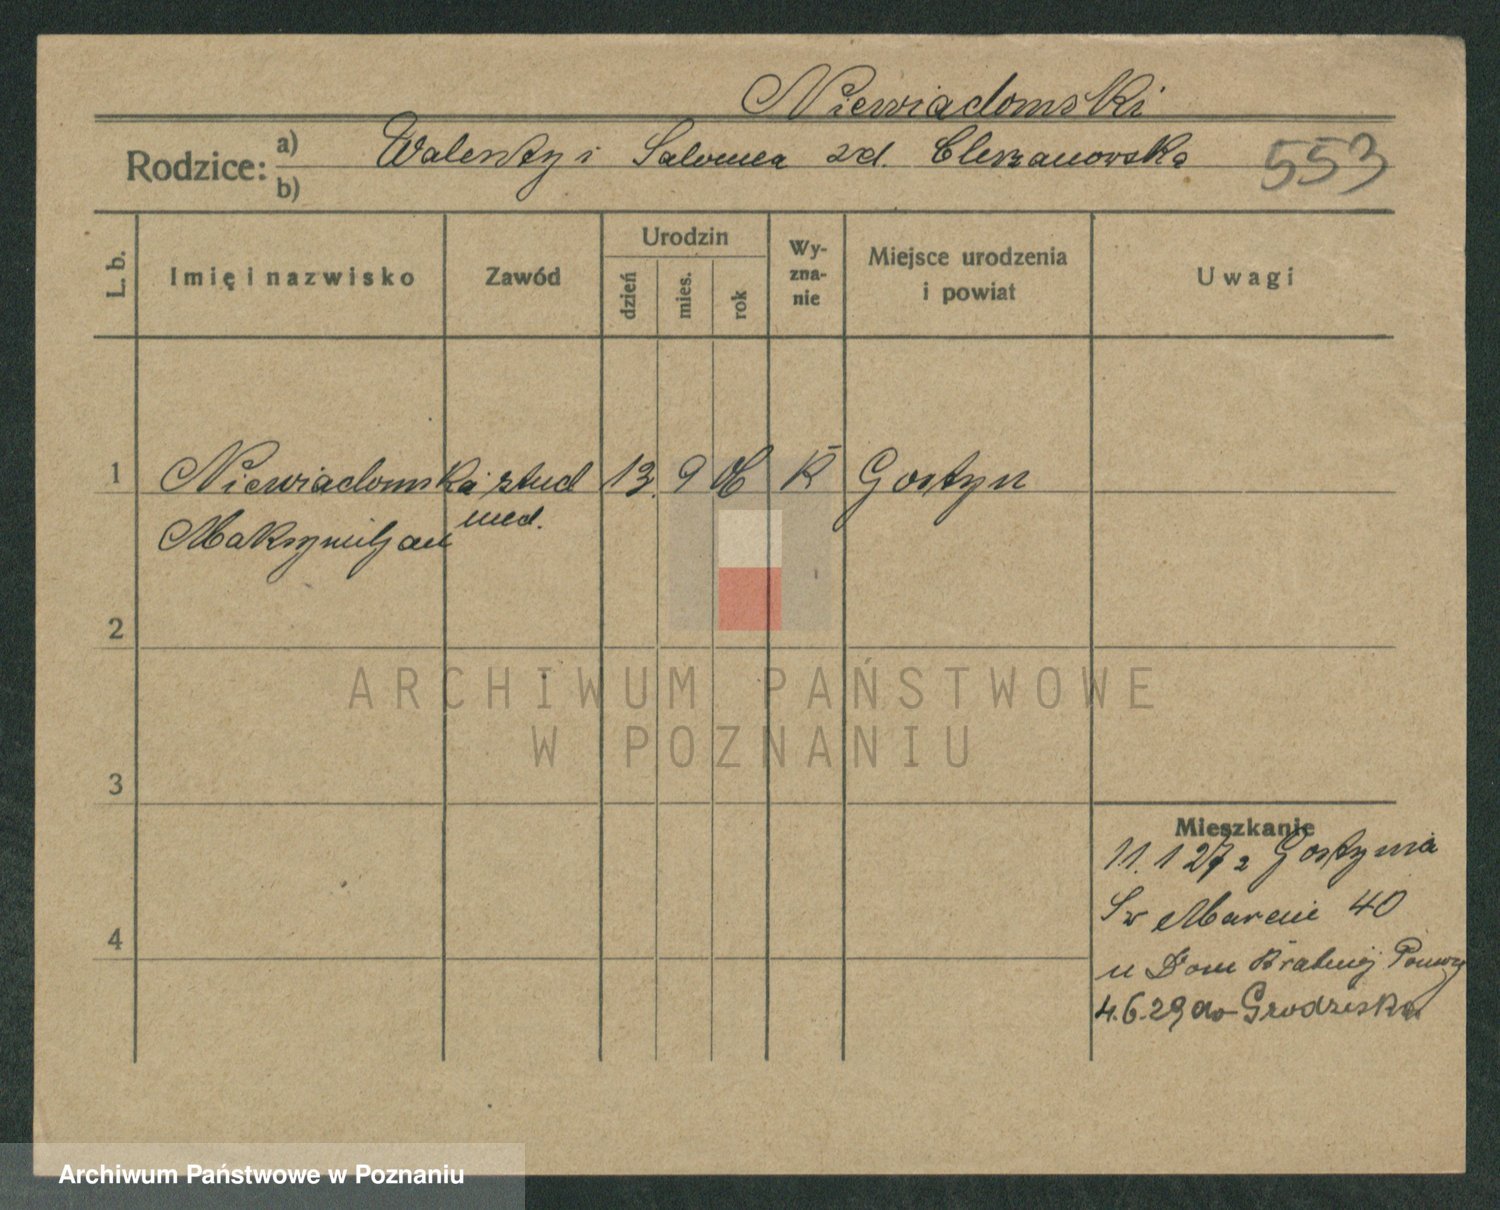 Niewiadomski
Rodzice: a) Walenty i Salomea zd.
b)
553
L. b.
Imię i nazwisko
Zawód
Urodzin
dzień
mies.
rok
Wy-
zna-
nie
Miejsce urodzenia
i powiat
Uwagi
1 Niewiadomski stud 13. 9 06 K Gostyn
Maksymiljan med.
2
3
4
Mieszkanie
11. 1 27 z Gostynia
Sw Marcin 40
u Dom Bratniej Pomocy
4.6.29 do Grodziska
ARCHIWUM PAŃSTWOWE
W POZNANIU
Archiwum Państwowe w Poznaniu